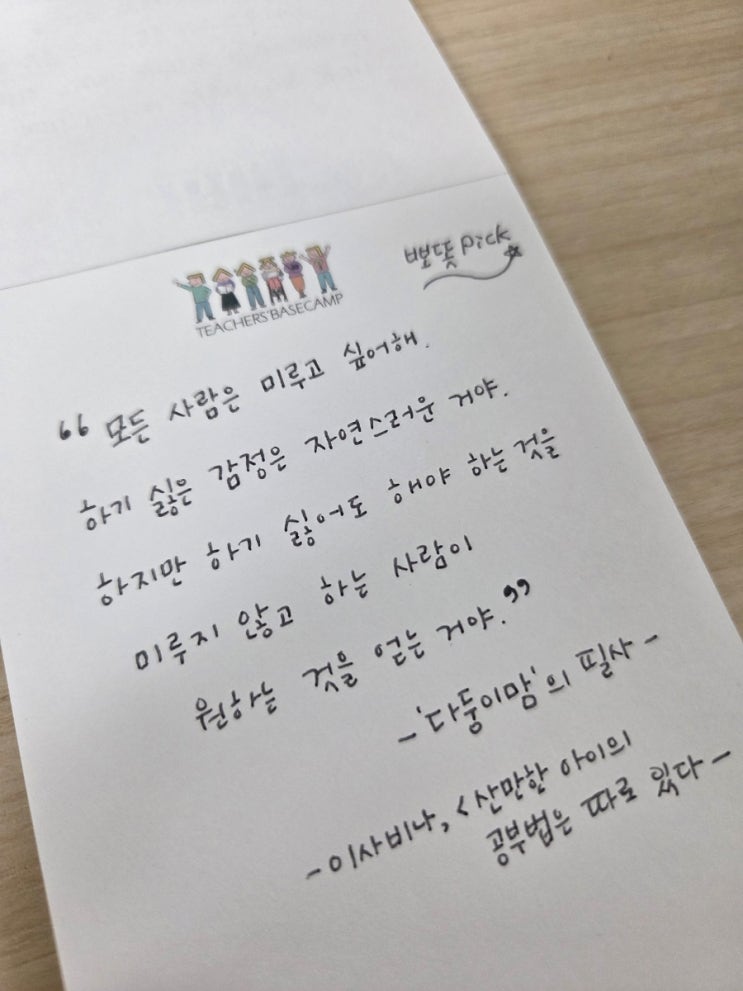 뽀뜻 pick
TEACHERS' BASECAMP
“ 모든 사람은 미루고 싶어해.
하기 싫은 감정은 자연스러운 거야.
하지만 하기 싫어도 해야 하는 것을
미루지 않고 하는 사람이
원하는 것을 얻는 거야.”
- '다둥이맘'의 필사 -
- 이사비나, <산만한 아이의
공부법은 따로 있다 -